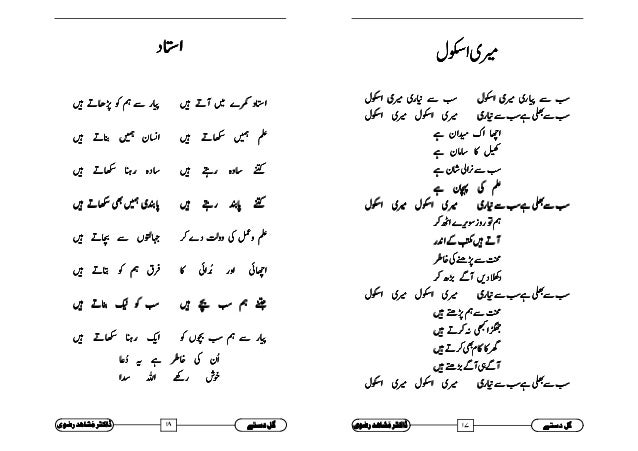 میری اسکول
سب سے پیاری میری اسکول سب سے نیاری میری اسکول
سب سے بھلی ہے سب سے نیاری میری اسکول میری اسکول
اچھا اک میدان ہے
کھیل کا سامان ہے
سب سے نرالی شان ہے
علم کی پہچان ہے
سب سے بھلی ہے سب سے نیاری میری اسکول میری اسکول
ہم تو روز سویرے اٹھ کر
آتے ہیں مکتب کے اندر
محنت سے پڑھنے کی خاطر
دکھلا دیں آگے بڑھ کر
سب سے بھلی ہے سب سے نیاری میری اسکول میری اسکول
محنت سے ہم پڑھتے ہیں
جھگڑا کبھی نہ کرتے ہیں
گھر کا کام بھی کرتے ہیں
آگے ہی آگے بڑھتے ہیں
سب سے بھلی ہے سب سے نیاری میری اسکول میری اسکول
گل دستے ۱۷ ڈاکٹر مُشاھد رضوی
استاد
استاد کمرے میں آتے ہیں پیار سے ہم کو پڑھاتے ہیں
علم ہمیں سکھاتے ہیں انسان ہمیں بناتے ہیں
کتنے سادہ رہتے ہیں سادہ رہنا سکھاتے ہیں
کتنے پابند رہتے ہیں پابندی ہمیں بھی سکھاتے ہیں
علم و عمل کی دولت دے کر جہالتوں سے بچاتے ہیں
اچھائی اور بُرائی کا فرق ہم کو بتاتے ہیں
جتنے ہم سب بچے ہیں سب کو نیک بناتے ہیں
پیار سے ہم سب بچوں کو ایک رہنا سکھاتے ہیں
اُن کی خاطر ہے یہ دُعا
خوش رکھے اللہ سدا
گل دستے ۱۸ ڈاکٹر مُشاھد رضوی